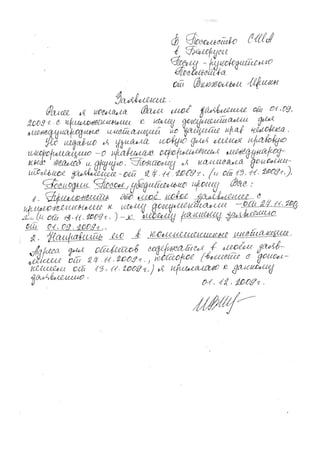 В Посольство США
в Беларуси
Послу - руководителю
Посольства
от Ирины
Заявление.
Ранее я послала Вам моё заявление от 01.09.
2009 г. с приложенными к нему документами для
международных инстанций по защите прав человека.
Но недавно я узнала новую для меня правовую
информацию - о правилах оформления международ-
ных жалоб и другую. Поэтому я написала дополни-
тельное заявление - от 27.11.2009 г. (и от 13.11.2009 г.).
Господин Посол, убедительно прошу Вас:
1. Приложить это моё новое заявление с
приложенными к нему документами - от 27.11.200
(и от 13.11.2009 г.) - к моему раннему заявлению
от 01.09.2009 г.
2. Направить его в компетентные инстанции.
Адреса для ответов содержатся в моём заяв-
лении от 27.11.2009 г., которое (вместе с допол-
нением от 13.11.2009 г.) я прилагаю к данному
заявлению.
01.12.2009 г.